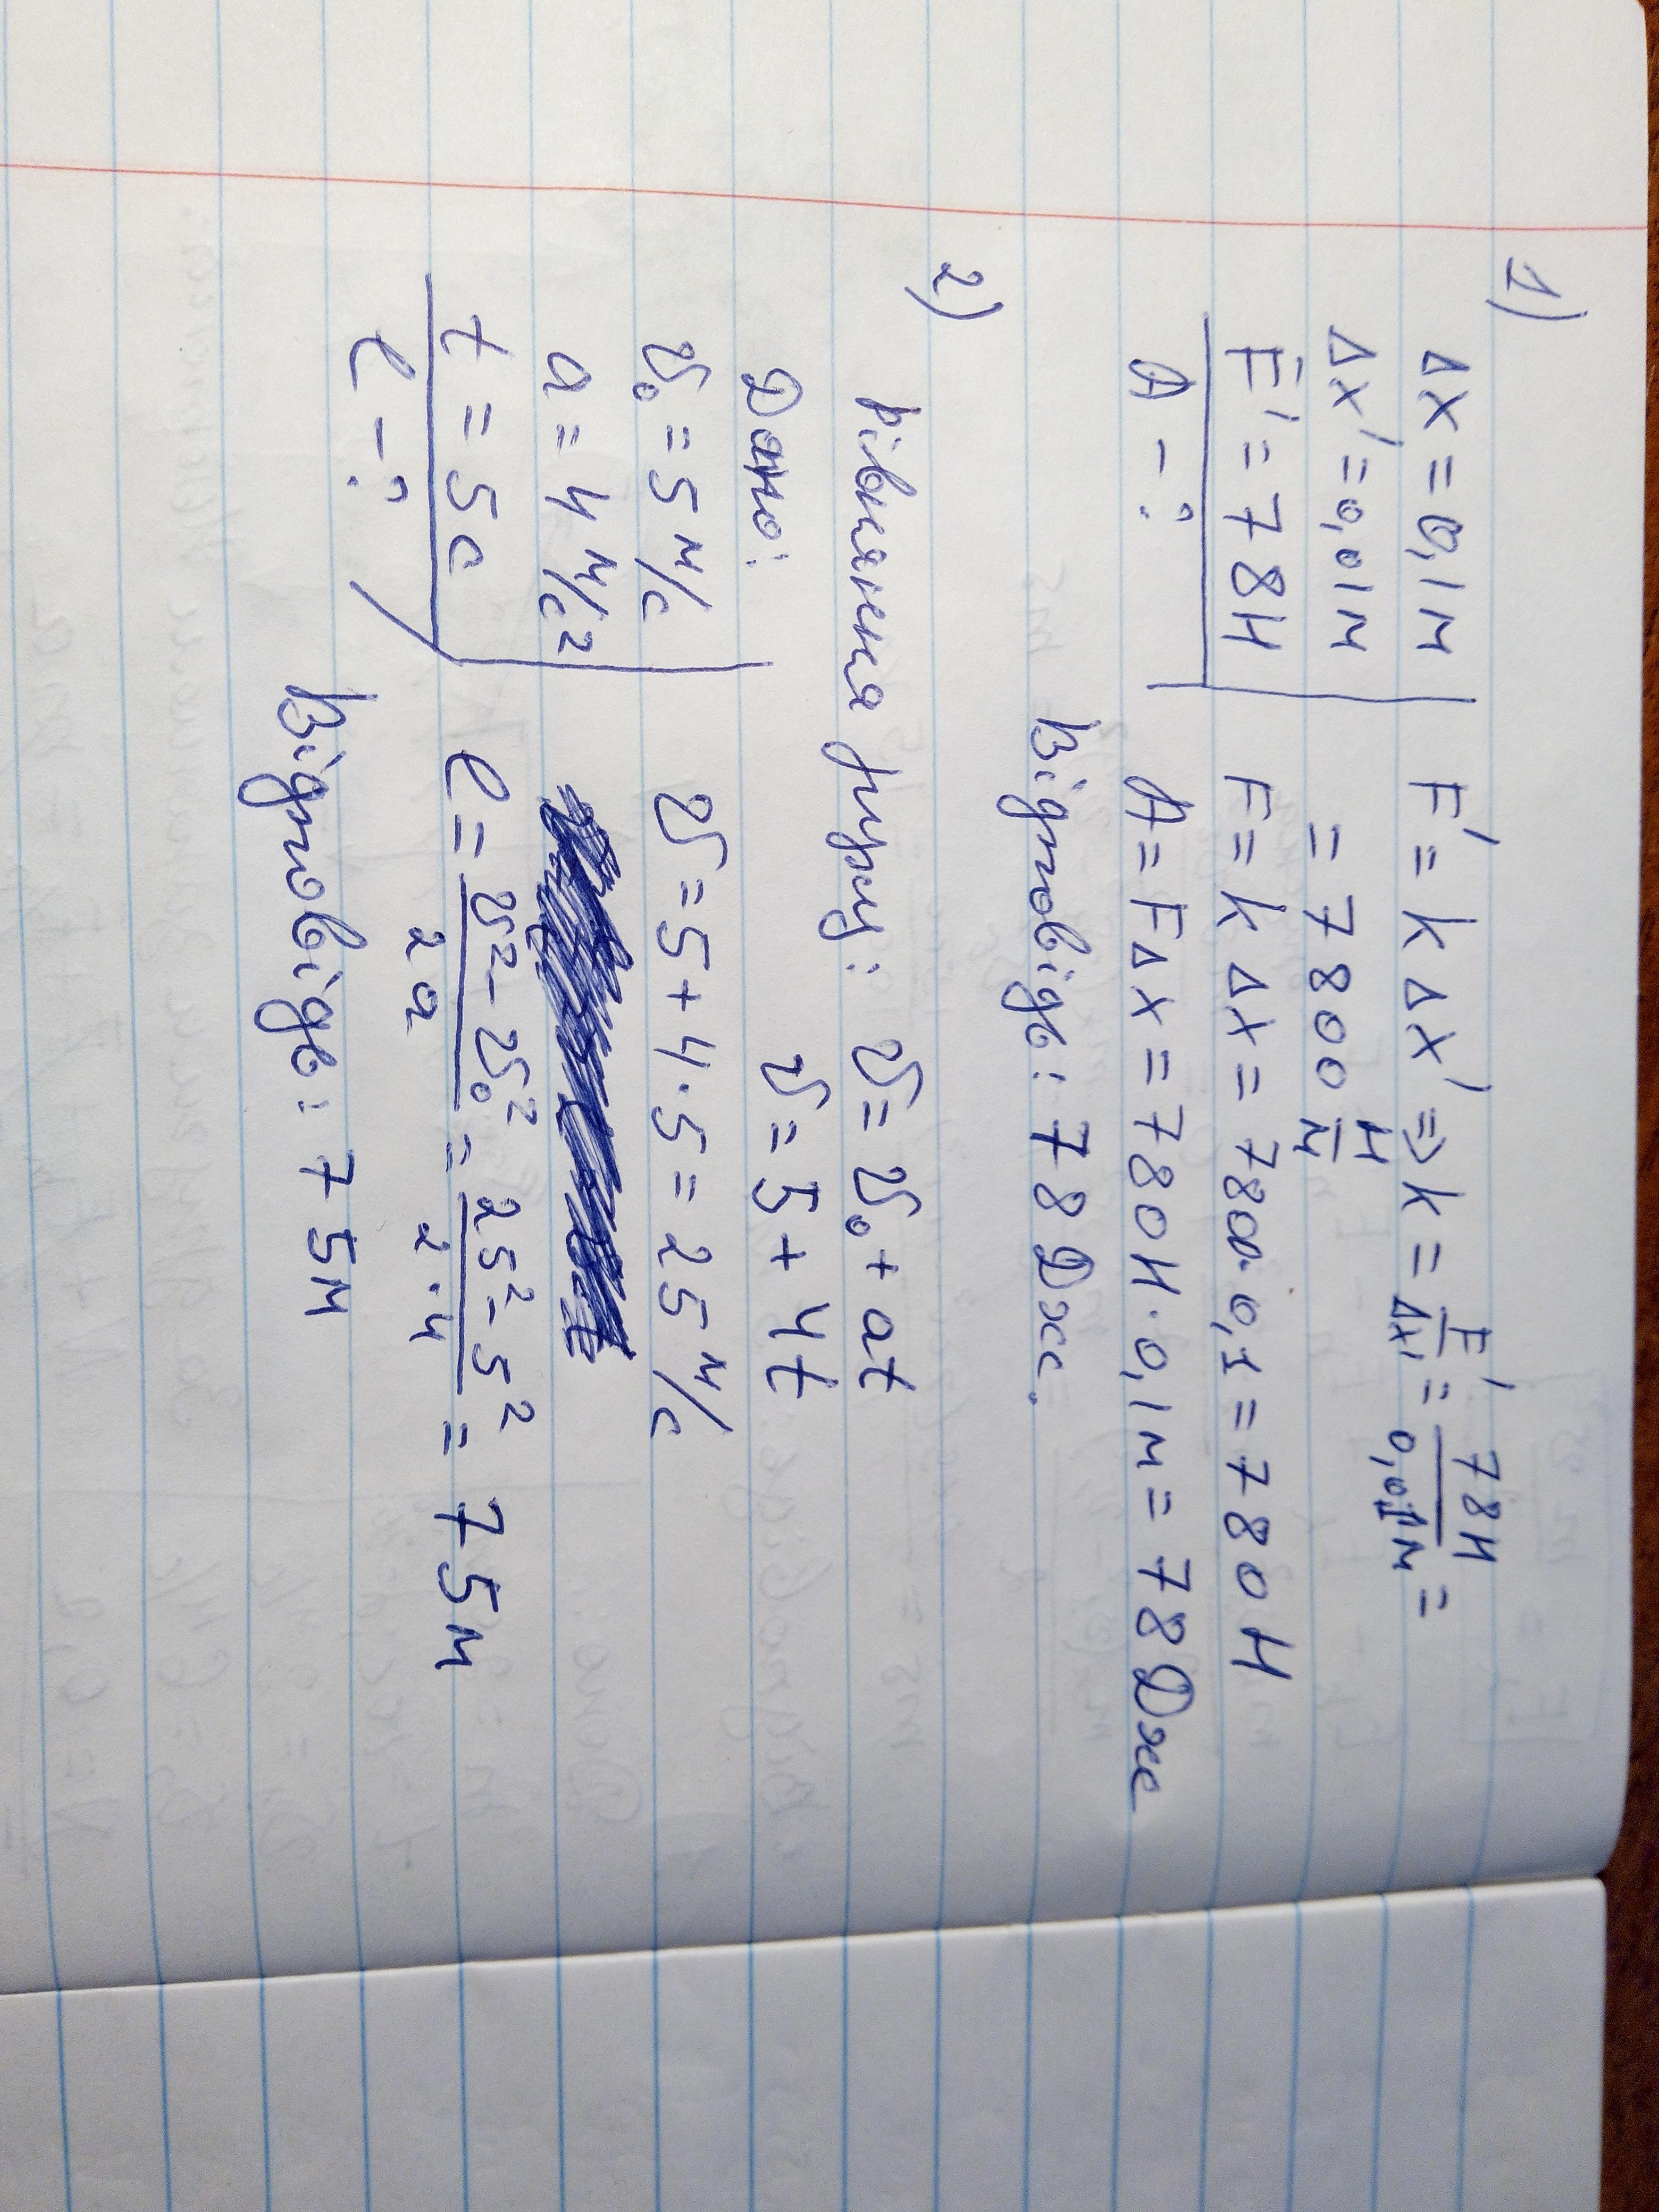 1)
Δx = 0,1 м
Δx' = 0,01 м
F' = 78 Н
A - ?
F' = k Δx' => k = F'/Δx' = 78 Н/0,01 м =
= 7800 Н/м
F = k Δx = 7800 · 0,1 = 780 Н
A = F Δx = 780 Н · 0,1 м = 78 Дж
Відповідь: 78 Дж.
2)
Рівняння руху: v = v₀ + at
v = 5 + 4t
Дано:
v₀ = 5 м/с
a = 4 м/с²
t = 5 с
l - ?
v = 5 + 4 · 5 = 25 м/с
l = (v² - v₀²)/2a = (25² - 5²)/2·4 = 75 м
Відповідь: 75 м